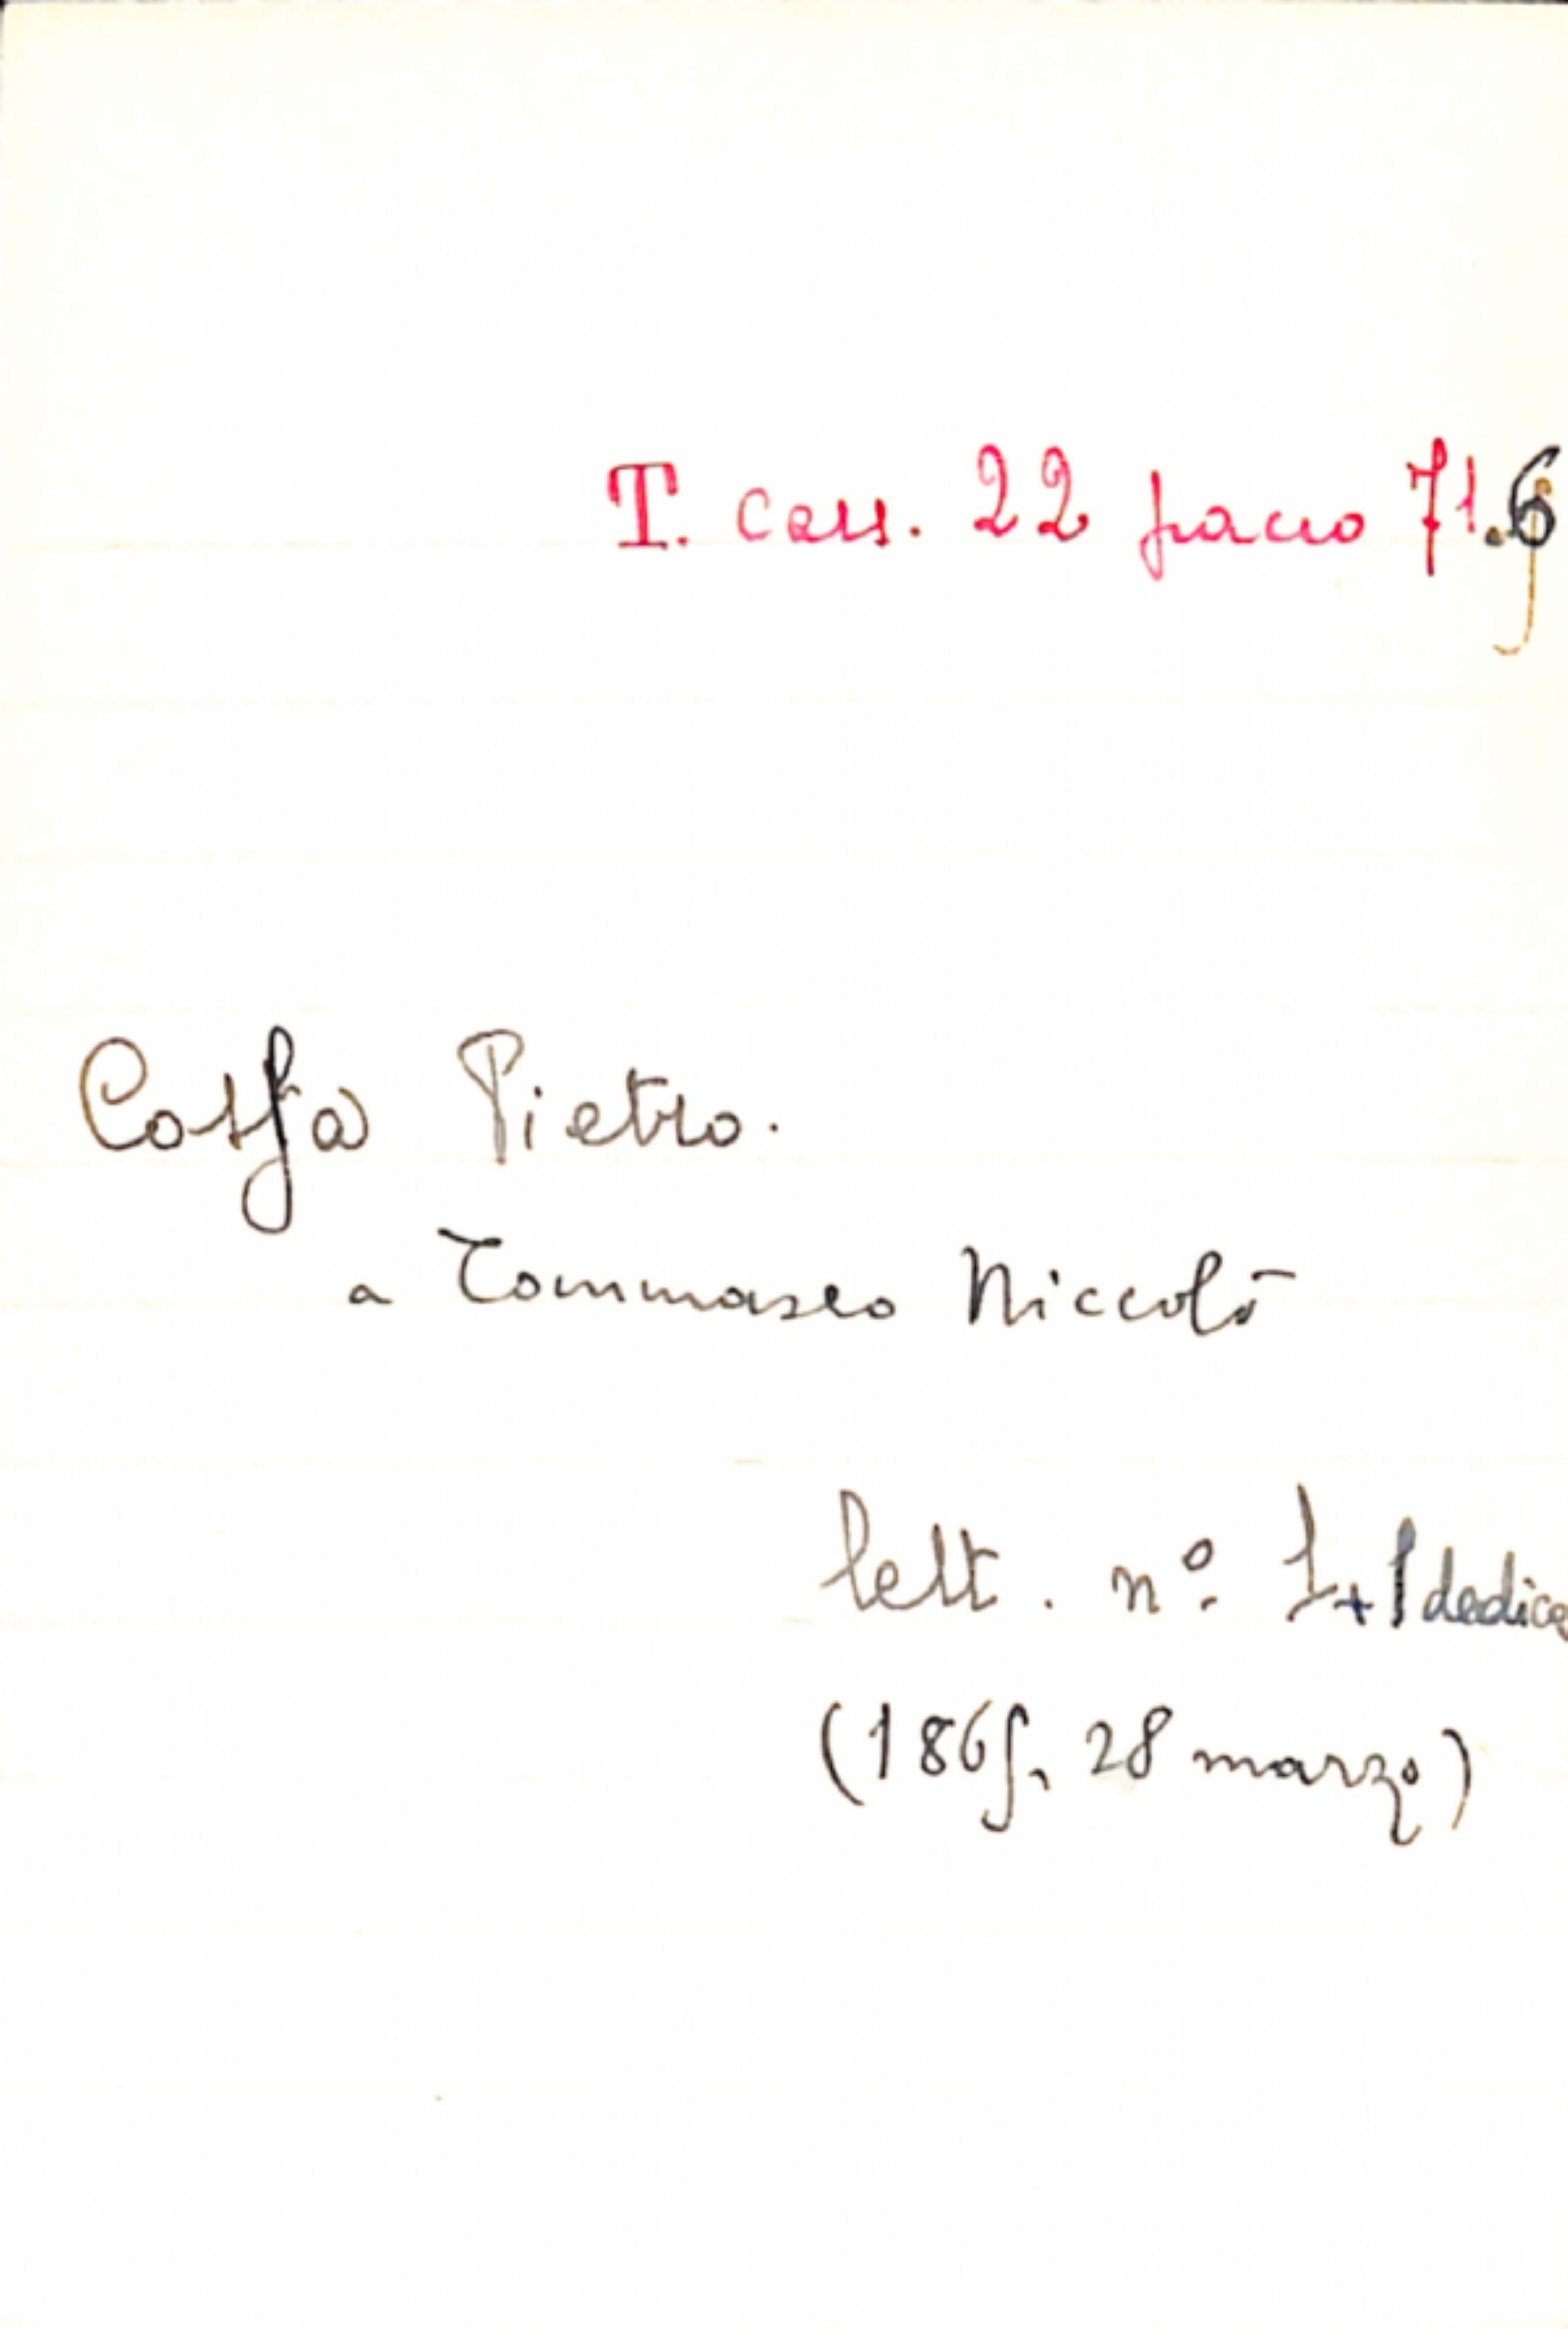 T. cass. 22 pacco 71.6
Cossa Pietro.
a Tommaseo Niccolò
lett. n.º 1 + 1 dedica
(1865, 28 marzo)